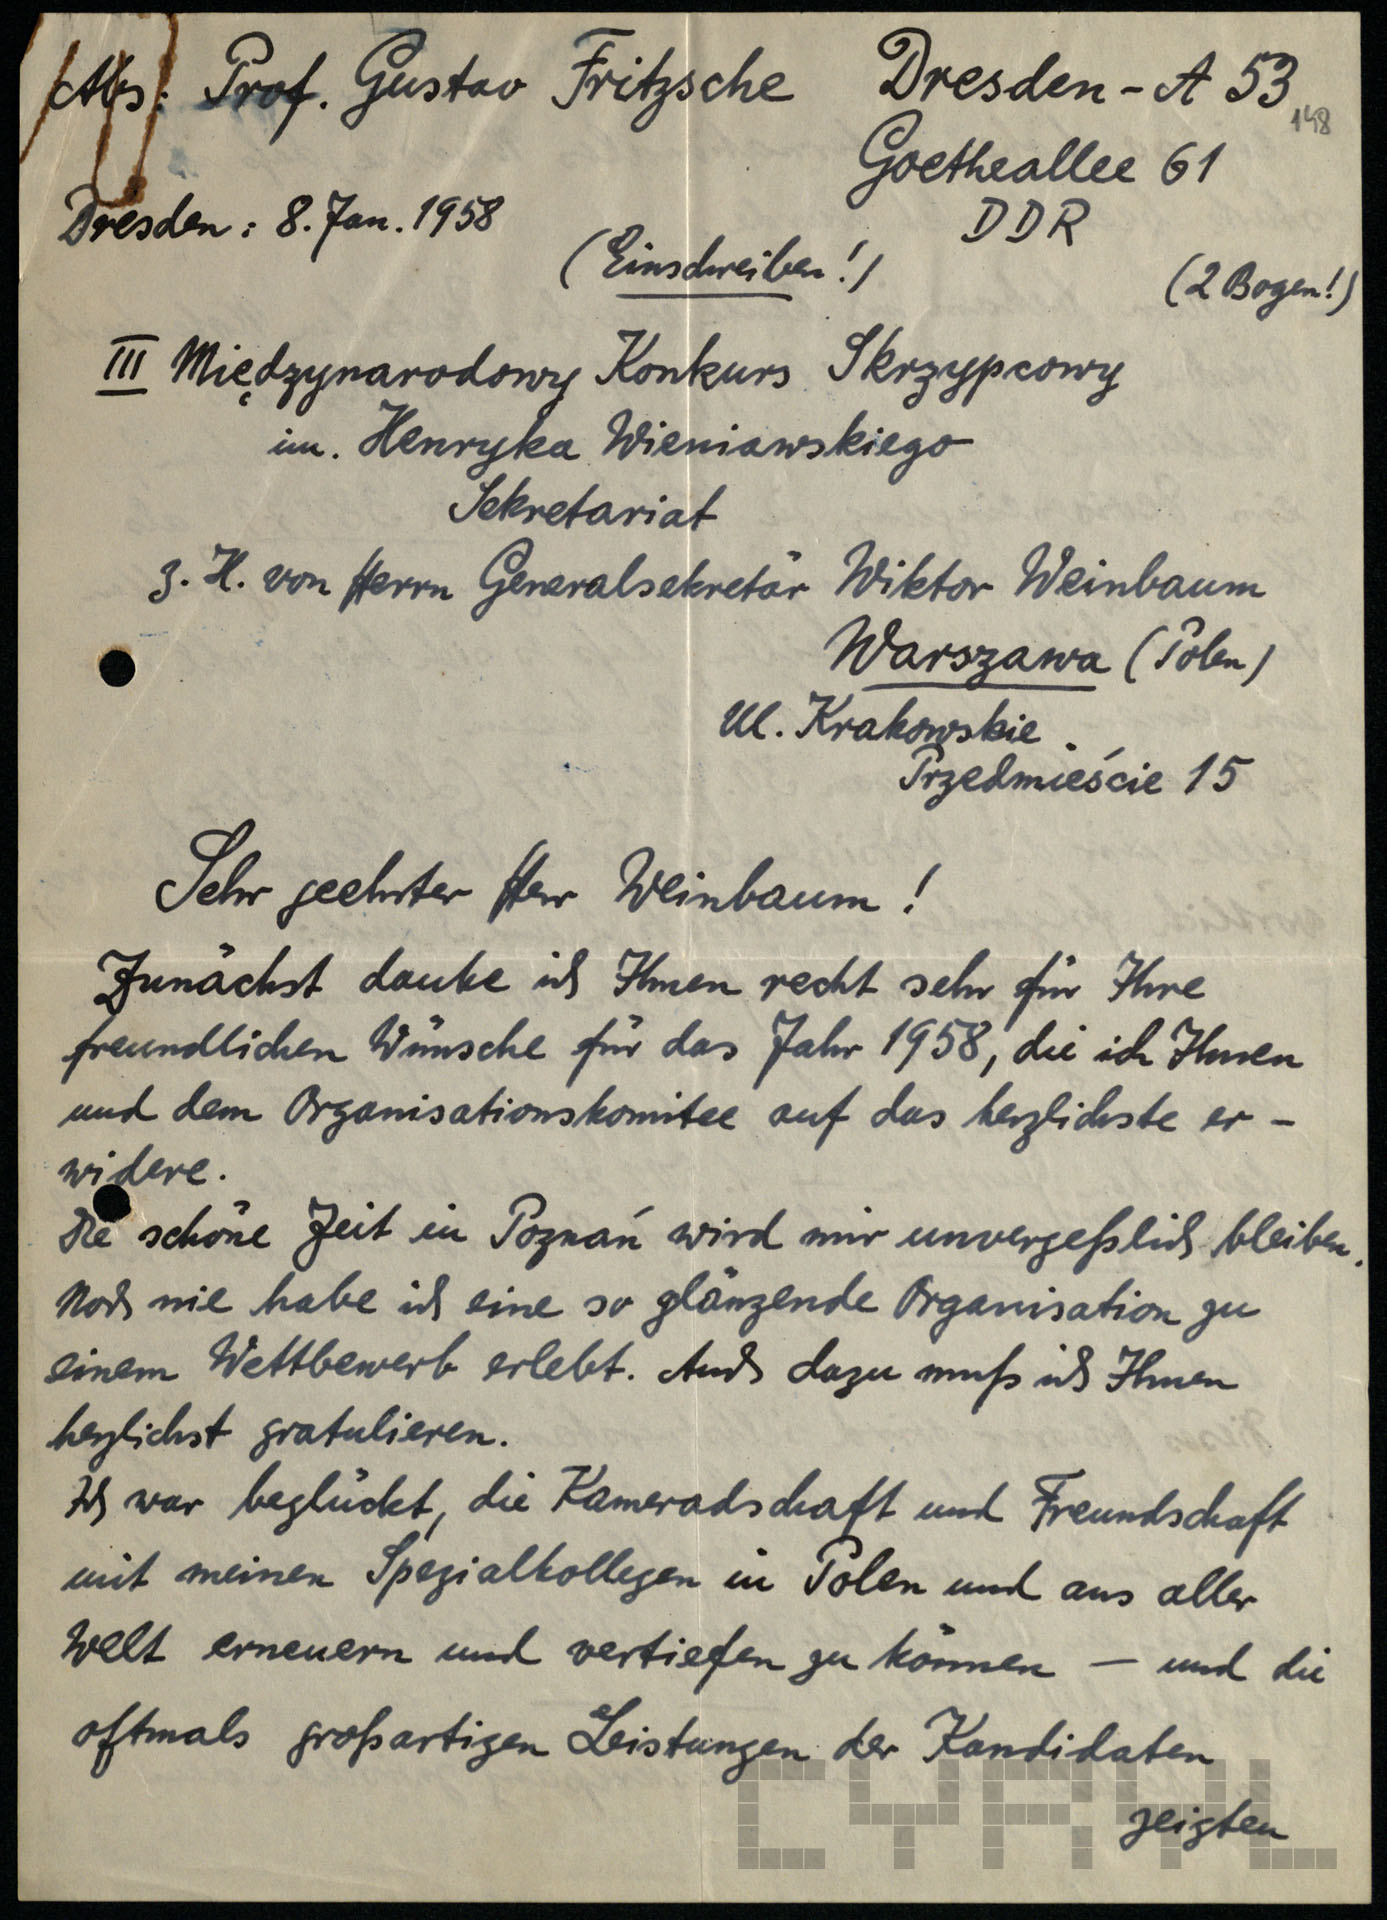 Abs: Prof. Gustav Fritzsche Dresden-A 53
148
Goetheallee 61
DDR
Dresden: 8. Jan. 1958
(Einschreiben!)
(2 Bogen!)
III Międzynarodowy Konkurs Skrzypcowy
im. Henryka Wieniawskiego
Sekretariat
z. H. von Herrn Generalsekretär Wiktor Weinbaum
Warszawa (Polen)
Ul. Krakowskie
Przedmieście 15
Sehr geehrter Herr Weinbaum!
Zunächst danke ich Ihnen recht sehr für Ihre
freundlichen Wünsche für das Jahr 1958, die ich Ihnen
und dem Organisationskomitee auf das herzlichste er-
widere.
Die schöne Zeit in Poznań wird mir unvergeßlich bleiben.
Noch nie habe ich eine so glänzende Organisation zu
einem Wettbewerb erlebt. Auch dazu muß ich Ihnen
herzlichst gratulieren.
Ich war beglückt, die Kameradschaft und Freundschaft
mit meinen Spezialkollegen in Polen und aus aller
Welt erneuern und vertiefen zu können — und die
oftmals großartigen Leistungen der Kandidaten
zeigten
CYRYL